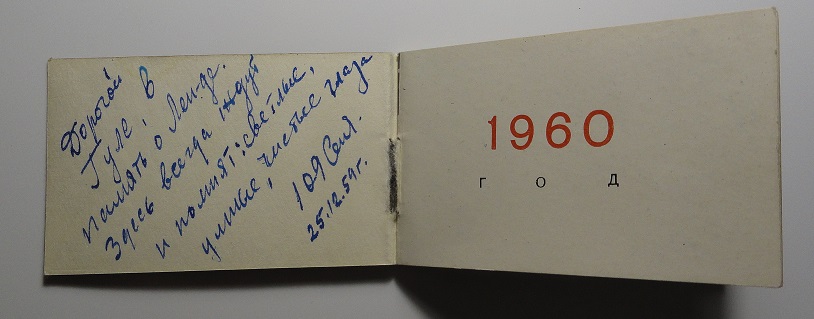 Дорогой
Гуле, в
память о Лен-де.
Здесь всегда ждут
и помнят: светлые,
умные, чистые глаза
109 Сент.
25.12.59г.
1960
ГОД